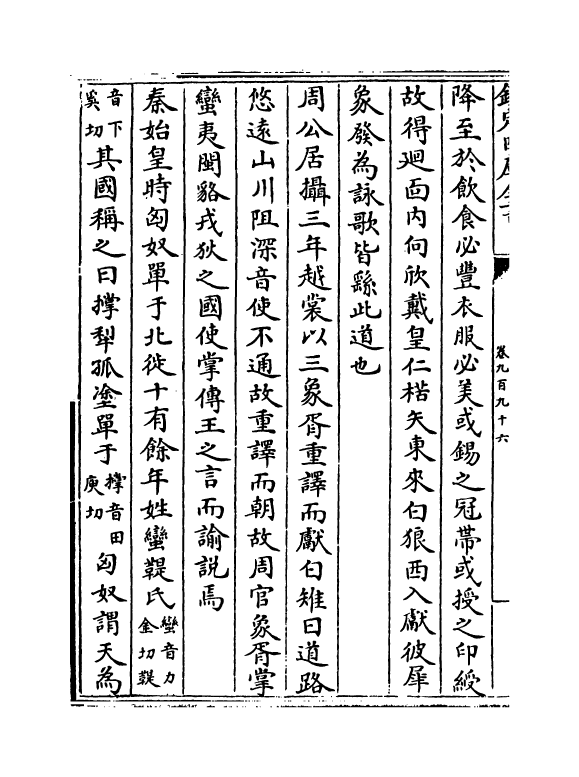 欽定四庫全書
卷九百九十六
降至於飲食必豐衣服必美或錫之冠帶或授之印綬
故得廻面内向欣戴皇仁楛矢東來白狼西入獻彼犀
象發為詠歌皆繇此道也
周公居攝三年越裳以三象胥重譯而獻白雉曰道路
悠遠山川阻深音使不通故重譯而朝故周官象胥掌
蠻夷閩貉戎狄之國使掌傳王之言而諭説焉
秦始皇時匈奴單于北徙十有餘年姓鑾鞮氏鑾音力全切鞮
音下奚切其國稱之曰撑犁孤塗單于撑音田庚切匈奴謂天為